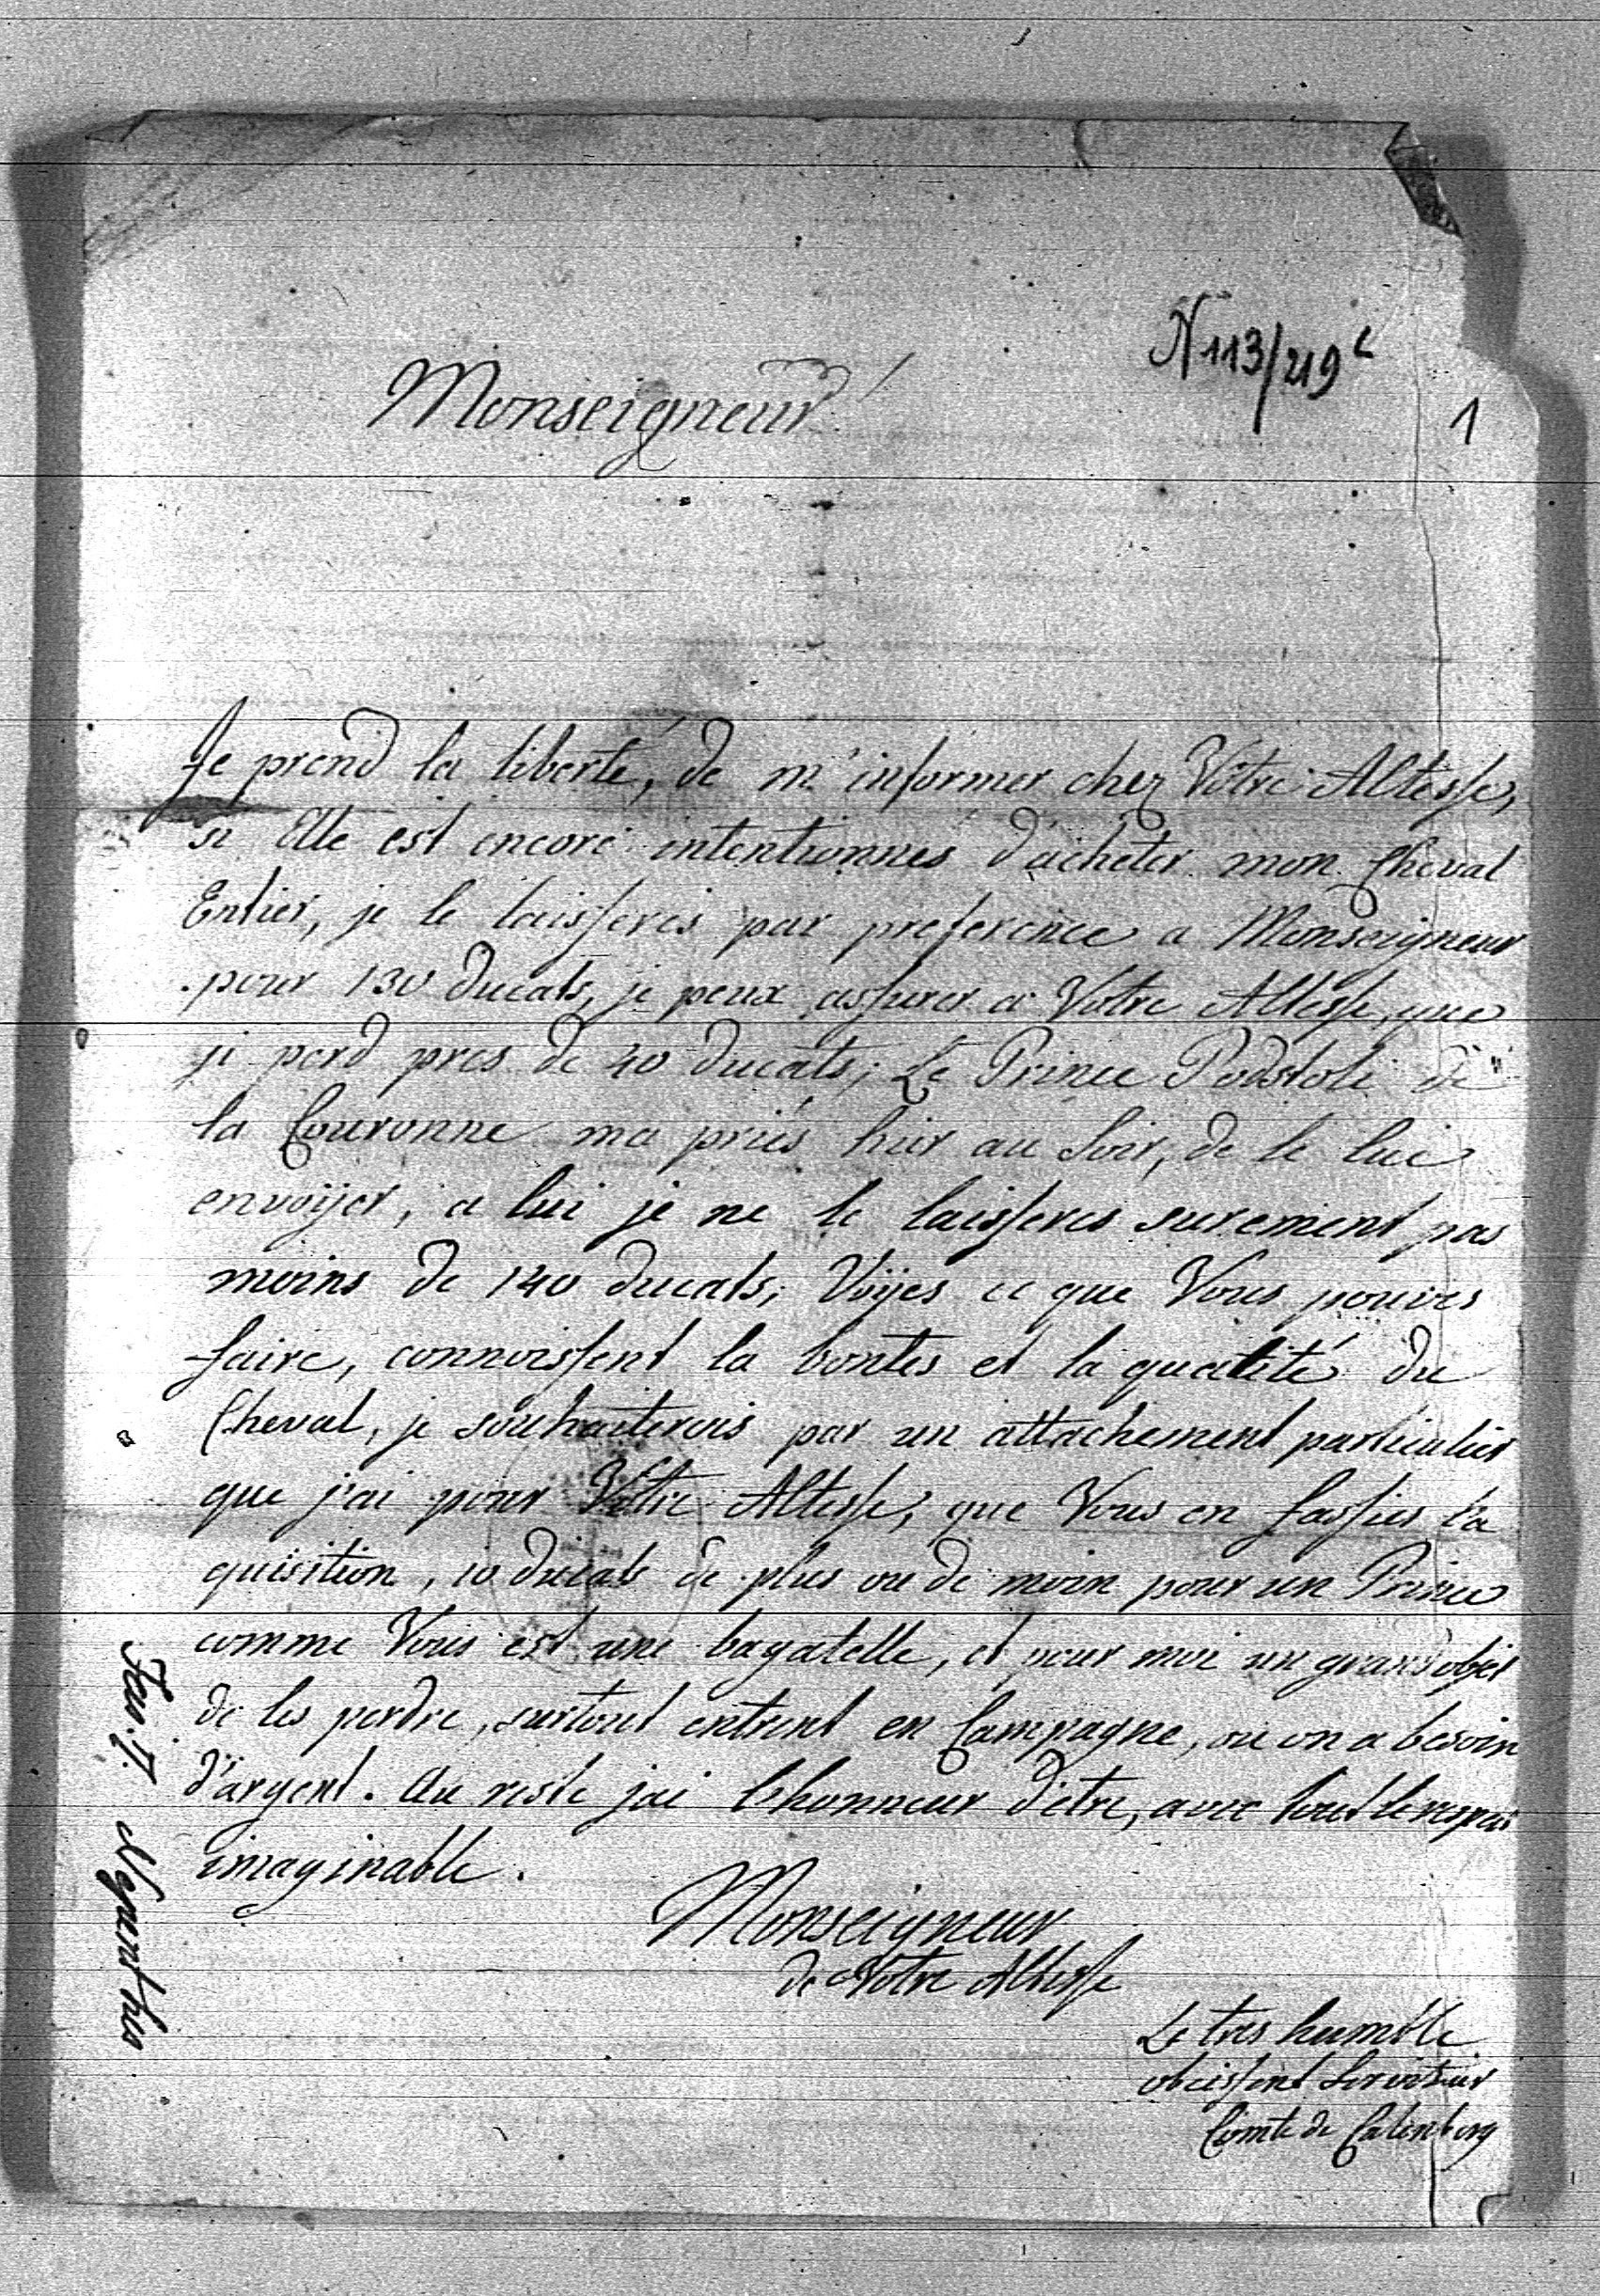 N 113/219
1
Monseigneur
Je prend la liberté, de m'informer chez Vôtre Altesse,
si Elle est encore intentionnés d'acheter mon Cheval
Entier, je le laisserés par preference a Monseigneur
pour 130 ducats, je peux assurer a Votre Altesse, que
ji perd pres de 40 ducats; Le Prince Podstoli de
la Couronne ma priés hier au Soir, de le lui
envoÿer, a lui je ne le laisseres surement pas
moins de 140 ducats; Voÿes ce que Vous pouves
faire, connoissent la bontes et la qualité du
Cheval, je souhaiterois par un attachement particulier
que j'ai pour Votre Altesse, que Vous en fassies l'a
quisition, 10 ducats de plus ou de moin pour un Prince
comme Vous est une bagatelle, et pour moi un grand objet
de les perdre, surtout entrent en Campagne, ou on a besoin
d'argent. Au reste jai l'honneur d'etre, avec tout le
imaginable.
Monseigneur
de Votre Altesse
Le tres humble
obeissent Serviteur
Comte de Calenberg